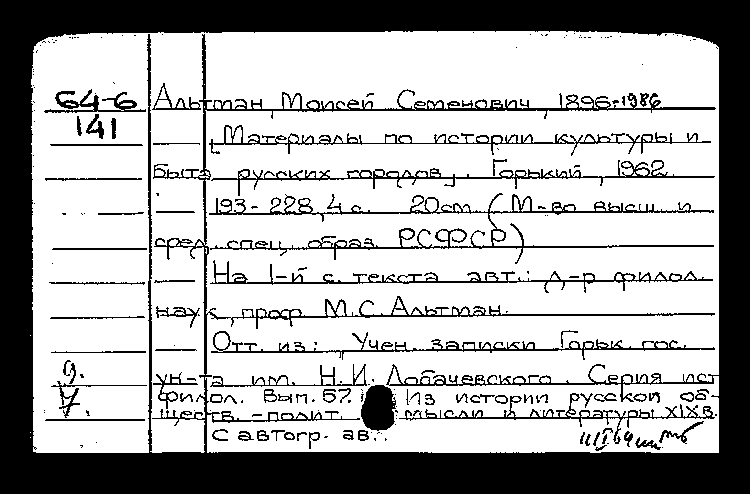 64-6 Альтман, Моисей Семенович, 1896-1986
141
[Материалы по истории культуры и
быта русских городов]. Горький, 1962.
193-228, 4 с. 20 см. (М-во высш. и
сред. спец. образ. РСФСР)
На 1-й с. текста авт.: д-р филол.
наук, проф. М.С. Альтман.
Отт. из: Учен. записки Горьк. гос.
ун-та им. Н.И. Лобачевского. Серия ист
филол. Вып. 57. Из истории русской об-
ществ.-полит. мысли и литературы XIX в.
С автогр. авт.